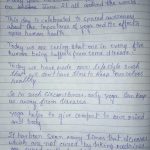 on 21st June. It all around the world
This day is celebrated to spread awareness
about the importance of yoga and its effects
upon human health.
Today we are living that one in every five
human being suffers from some disease.
Today we have made our lifestyle such
that we don't have time to keep ourselves
healthy.
So in such circumstances only yoga can keep
us away from diseases.
Yoga helps to give comfort to our mind
and
It has been seen many times that diseases
which are not cured by taking medicines